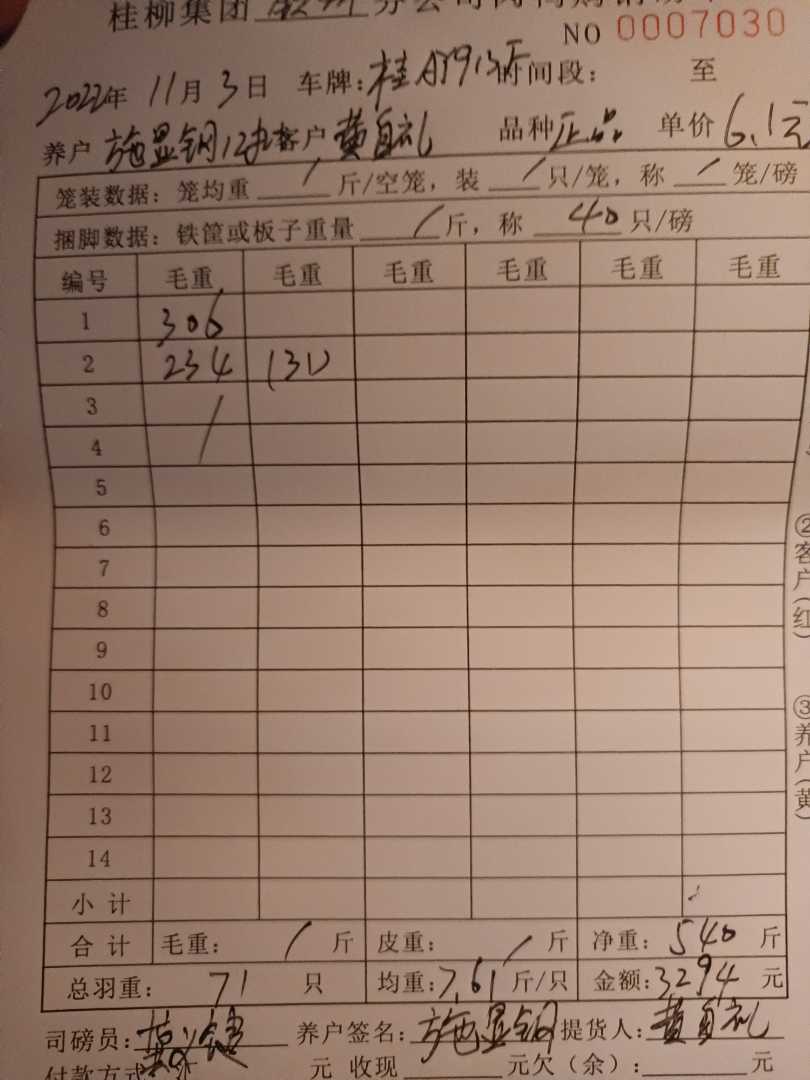 桂柳集团 分公司肉鸭购销
NO 0007030
2022年 11月 3日 车牌:桂 时间段: 至
养户 施显钢 12批 客户 黄自礼 品种 正品 单价 6.1元
笼装数据: 笼均重 / 斤/空笼, 装 / 只/笼, 称 / 笼/磅
捆脚数据: 铁筐或板子重量 / 斤, 称 40 只/磅
编号 毛重 毛重 毛重 毛重 毛重 毛重
1 306
2 234 (31)
3 /
4
5
6
7
8
9
10
11
12
13
14
小 计
合 计 毛重: / 斤 皮重: / 斤 净重: 540 斤
总羽重: 71 只 均重: 7.61 斤/只 金额: 3294 元
司磅员: 养户签名: 施显钢 提货人: 黄自礼
付款方式 元 收现 元欠(余): 元
②客户(红)
③养户(黄)